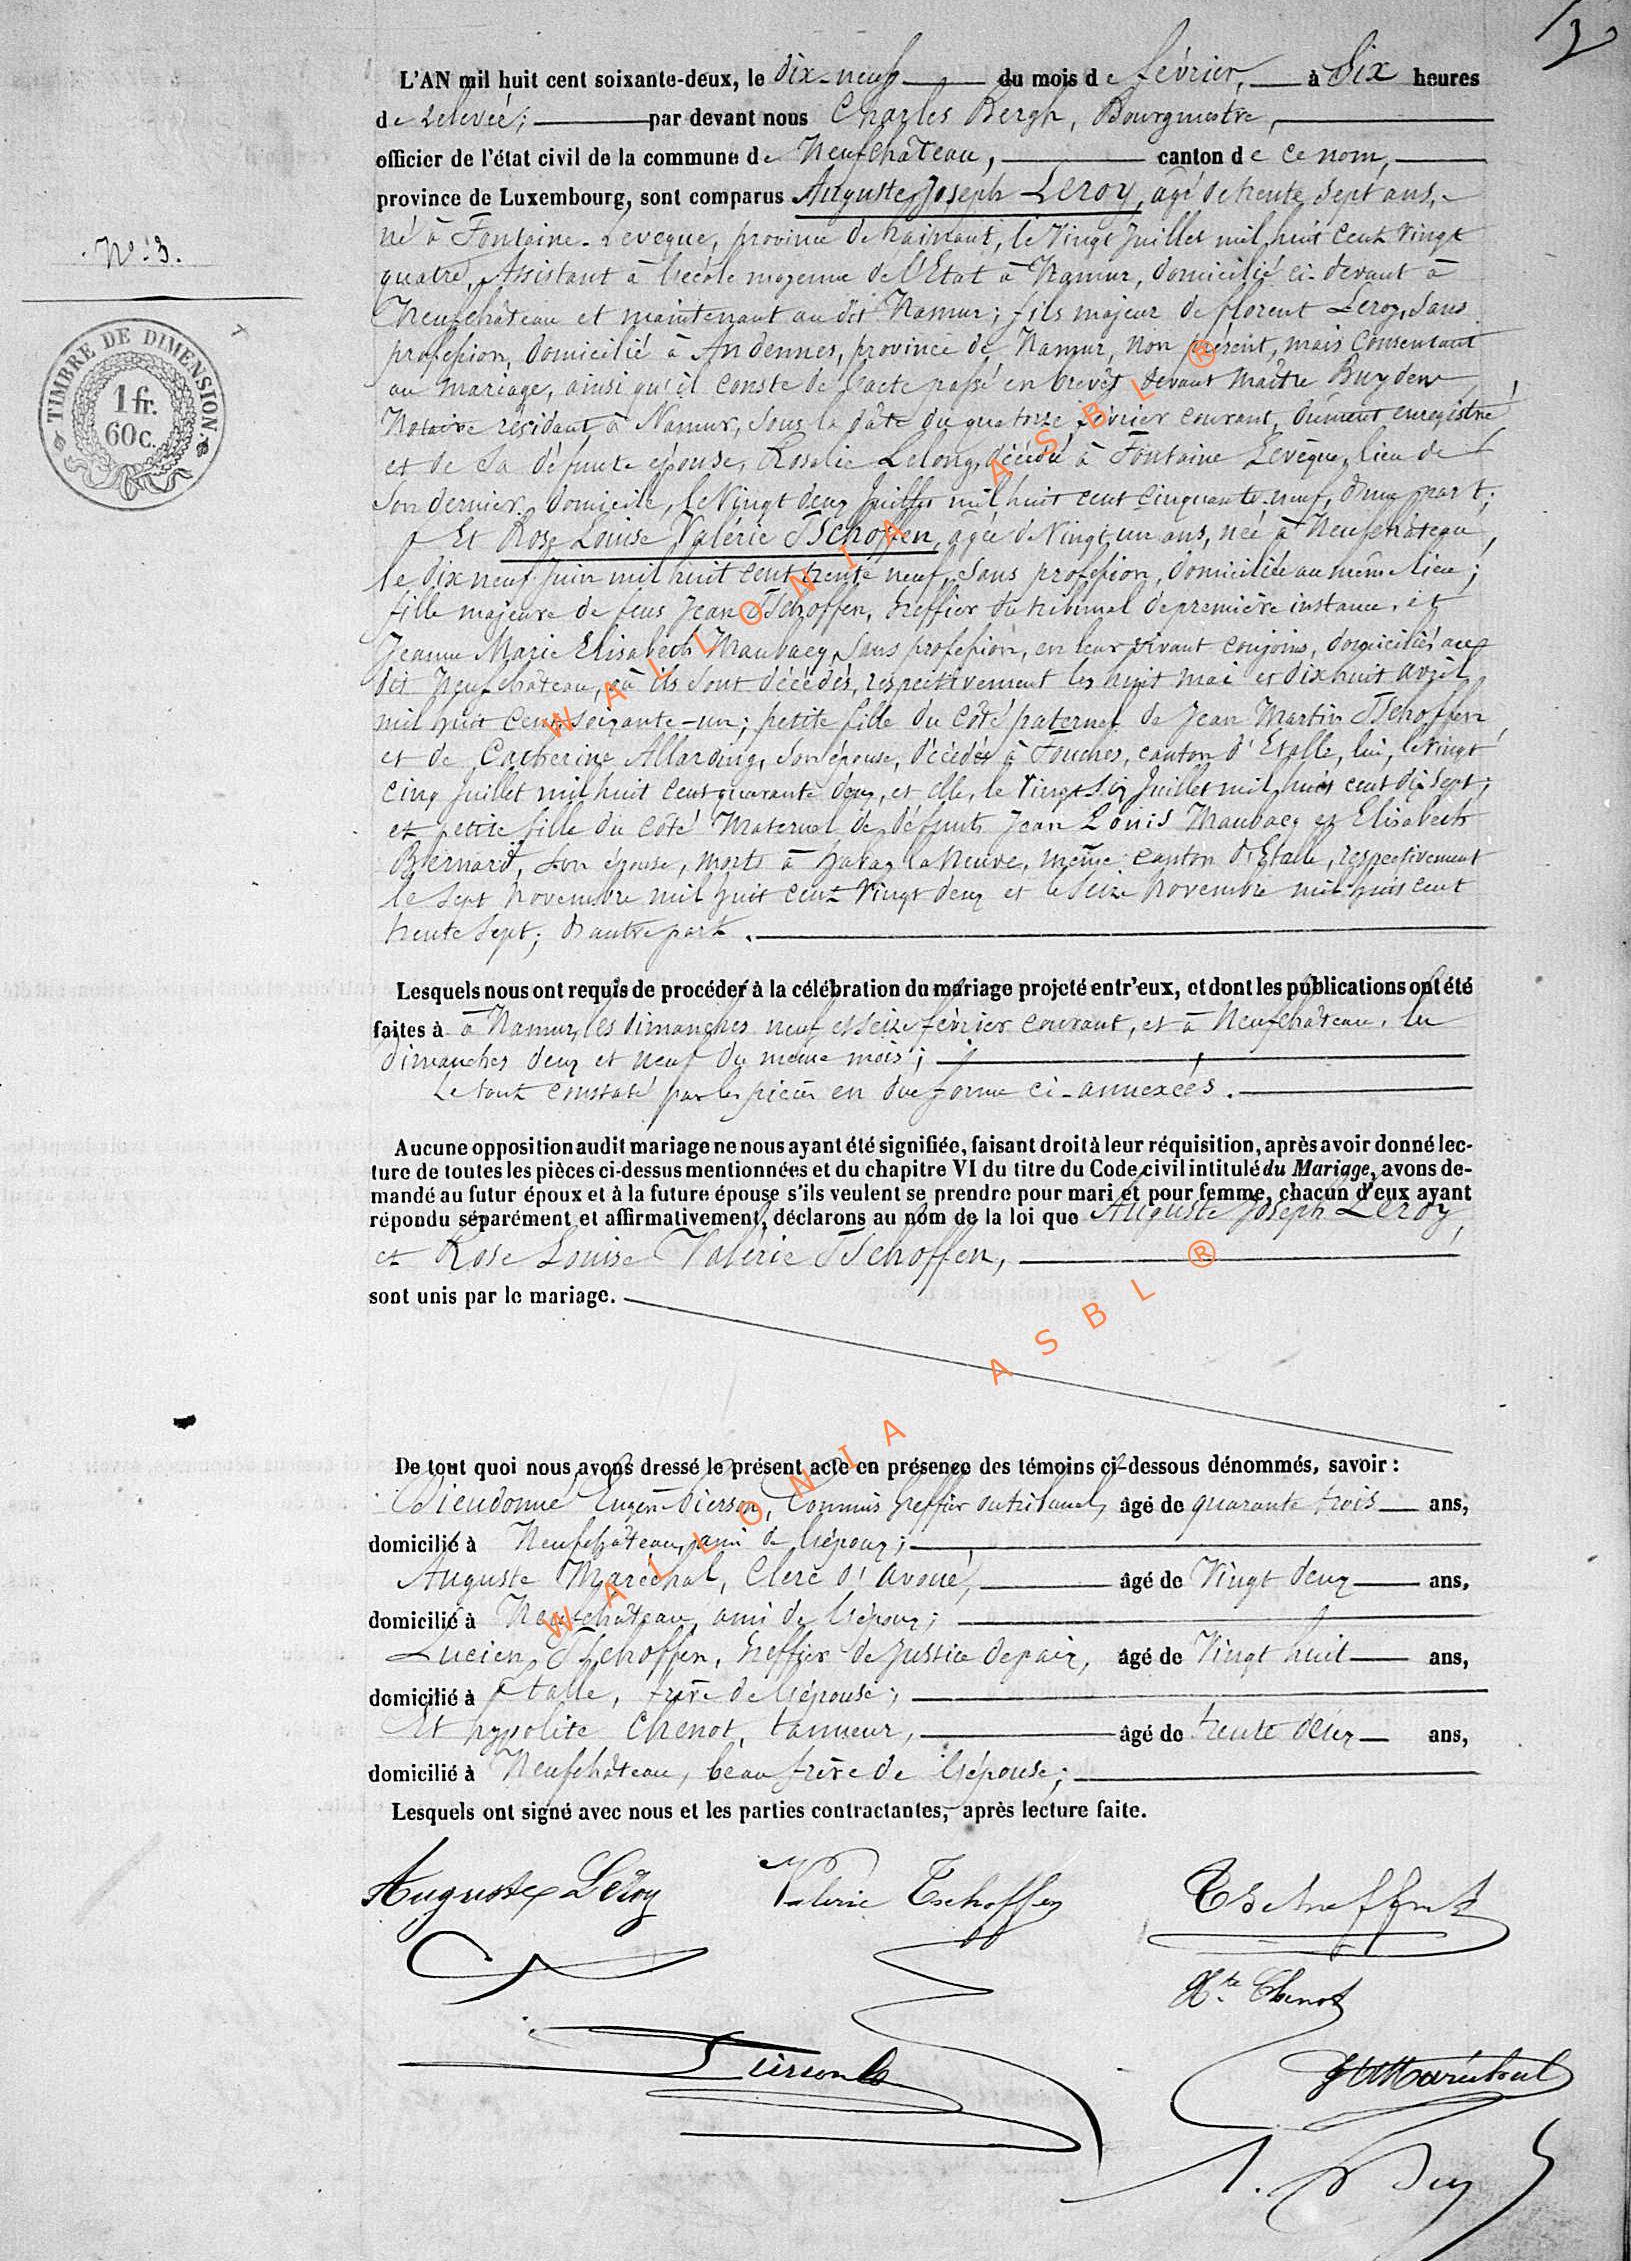 L'AN mil huit cent soixante-deux, le dix-neuf du mois de février, à six heures
de relevée; par devant nous Charles Bergh, Bourgmestre,
officier de l'état civil de la commune de Neufchâteau, canton de ce nom,
province de Luxembourg, sont comparus Auguste Joseph Leroy, âgé de trente sept ans,
né à Fontaine-Leveque, province de hainaut, le vingt juillet mil huit cent vingt
N° 3.
quatre, Assistant à l'école moyenne de l'Etat à Namur, domicilié ci-devant à
Neufchâteau et maintenant au dit Namur; fils majeur de florent Leroy, sans
profession, domicilié à Andennes, province de Namur, non présent, mais consentant
au mariage, ainsi qu'il conste de l'acte passé en brevet devant Maître Buydens
Notaire résidant à Namur, sous la date du quatorze février courant, dûment enregistré
et de sa défunte épouse, Rosalie Lelong, décédée à Fontaine Levêque, lieu de
son dernier domicile, le vingt deux juillet mil huit cent cinquante neuf, d'une part;
Et Rose Louise Valérie Tschoffen, âgée de vingt un ans, née à Neufchâteau,
le dix neuf juin mil huit cent trente neuf, sans profession, domiciliée au même lieu;
fille majeure de feus Jean Tschoffen, Greffier du tribunal de première instance, et
Jeanne Marie Elisabeth Maubacq, sans profession, en leur vivant conjoins, domiciliés au
dit Neufchâteau, où ils sont décédés, respectivement les huit mai et dix huit avril
mil huit cent soixante-un; petite fille du côté paternel de Jean Martin Tschoffen
et de Catherine Allarding, son épouse, décédés à Fouches, canton d'Etalle, lui, le vingt
cinq juillet mil huit cent quarante deux, et elle, le vingt six juillet mil huit cent dix sept;
et petite fille du côté Maternel de défunts Jean Louis Maubacq et Elisabeth
Bernard, son épouse, morts à habay la Neuve, même canton d'Etalle, respectivement
le sept novembre mil huit cent vingt deux et le seize novembre mil huit cent
trente sept; d'autre part.
Lesquels nous ont requis de procéder à la célébration du mariage projeté entr'eux, et dont les publications ont été
faites à à Namur, les dimanches neuf et seize février courant, et à Neufchâteau, les
dimanches deux et neuf du même mois;
Le tout constaté par les pièces en due forme ci-annexées.
Aucune opposition audit mariage ne nous ayant été signifiée, faisant droit à leur réquisition, après avoir donné lec-
ture de toutes les pièces ci-dessus mentionnées et du chapitre VI du titre du Code civil intitulé du Mariage, avons de-
mandé au futur époux et à la future épouse s'ils veulent se prendre pour mari et pour femme, chacun d'eux ayant
répondu séparément et affirmativement, déclarons au nom de la loi que Auguste Joseph Leroy,
et Rose Louise Valérie Tschoffen,
sont unis par le mariage.
De tout quoi nous avons dressé le présent acte en présence des témoins ci-dessous dénommés, savoir :
Dieudonné Eugène Pierson, Commis Greffier du tribunal, âgé de quarante trois ans,
domicilié à Neufchâteau, ami de l'époux;
Auguste Maréchal, Clerc d'avoué, âgé de vingt deux ans,
domicilié à Neufchâteau, ami de l'époux;
Lucien Tschoffen, Greffier de justice de paix, âgé de vingt huit ans,
domicilié à Etalle, frère de l'épouse;
Et hypolite Chenot, tanneur, âgé de trente deux ans,
domicilié à Neufchâteau, beau frère de l'épouse;
Lesquels ont signé avec nous et les parties contractantes, après lecture faite.
Auguste Leroy Valérie Tschoffen Tschoffen
Hte Chenot
Pierson
Maréchal
TIMBRE DE DIMENSION.
1 fr.
60c.
WALLONIA ASBL ®
WALLONIA ASBL ®